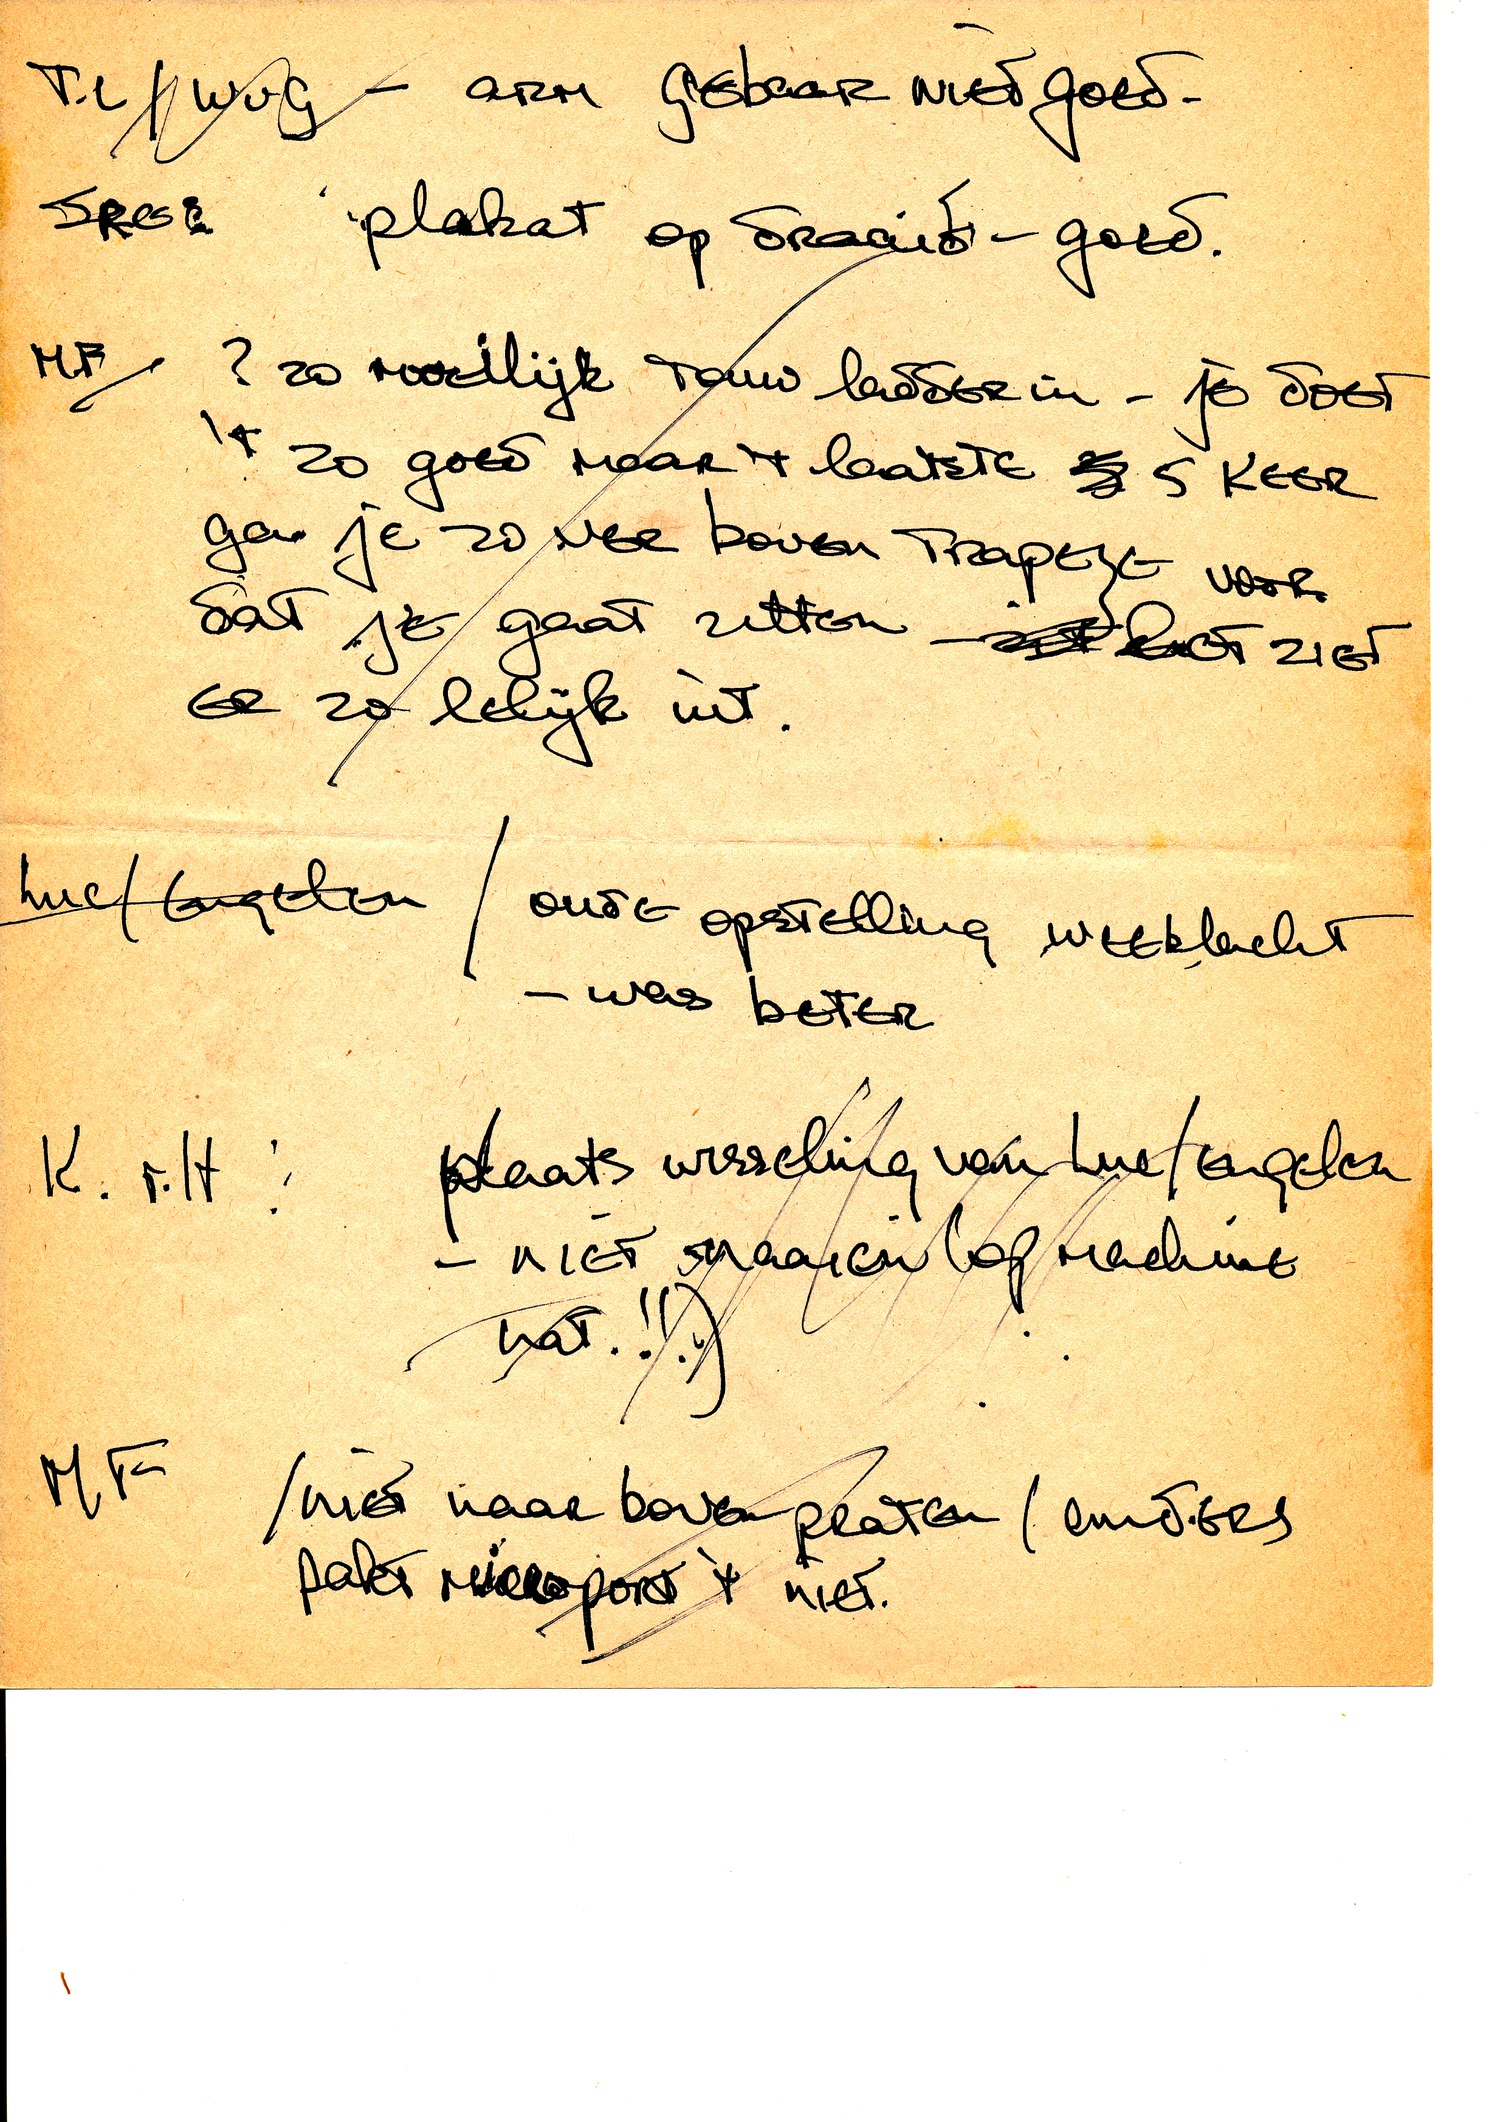 T.L / WvG - arm gebaar niet goed -
plakat op draaid - goed.
M.F / ? zo moeilijk touw ladder in - je doet
't zo goed maar 't laatste 5 keer
ga je zo ver boven Trapeze voor
dat je gaat zitten - het ziet
er zo lelijk uit.
Luc / Engelen / oude opstelling weeklacht
- was beter
K. v.H : plaats wisseling van Luc / engelen
- niet maaien (op machine
nat.!!.)
M F / niet naar boven praten / anders
pakt microport 't niet.